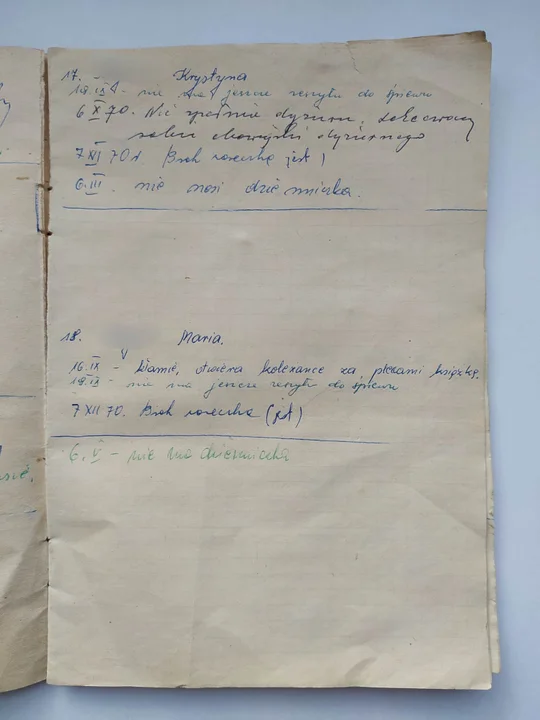 17. Krystyna
19.IX - nie ma jeszcze zeszytu do śpiewu
6 X 70. Nie spełnia dyżuru, lekceważy
sobie obowiązki dyżurnego
7 XII 70 r. Brak woreczka jest!
6.III. nie nosi dzienniczka.
18. Maria.
16.IX - kłamie, otwiera koleżance za plecami książkę.
19.IX - nie ma jeszcze zeszytu do śpiewu
7 XII 70. Brak woreczka (jest)
6.V - nie ma dzienniczka